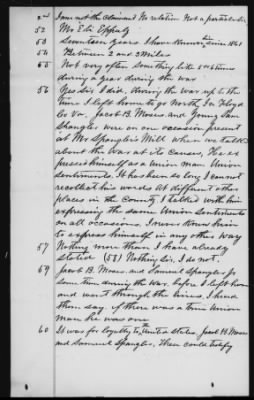 2nd I am not the claimant No relation. Not a particular
52 Mr Eli Epperly
53 Seventeen years I have known since 1861
54 Between 2 and 3 miles
55 Not very often something like 5 or 6 times
during a year during the war
56 Yes Sir I did, during the war up to the
time I left home to go North In Floyd
Co Va, Jacob B. Moses and Young Sam
Spangler were on one occasion present
at Mr Spangler's Mill when we talked
about the War at its causes, He ex
pressed himself as a union man Union
sentiments. It has been so long I can not
recollect his words At different other
places in the County I talked with him
expressing the same Union Sentiments
on all occasions. I never knew him
to express himself in any other way
57 Nothing more than I have already
stated (58) Nothing Sir, I do not.
59 Jacob B. Moses and Samuel Spangler Jr
some time during the War, before I left home
and went through the lines, I heard
them say if there was a true Union
man he was one
60 It was for loyalty to the United States, Jacob B. Moses
and Samuel Spangler, Then could testify